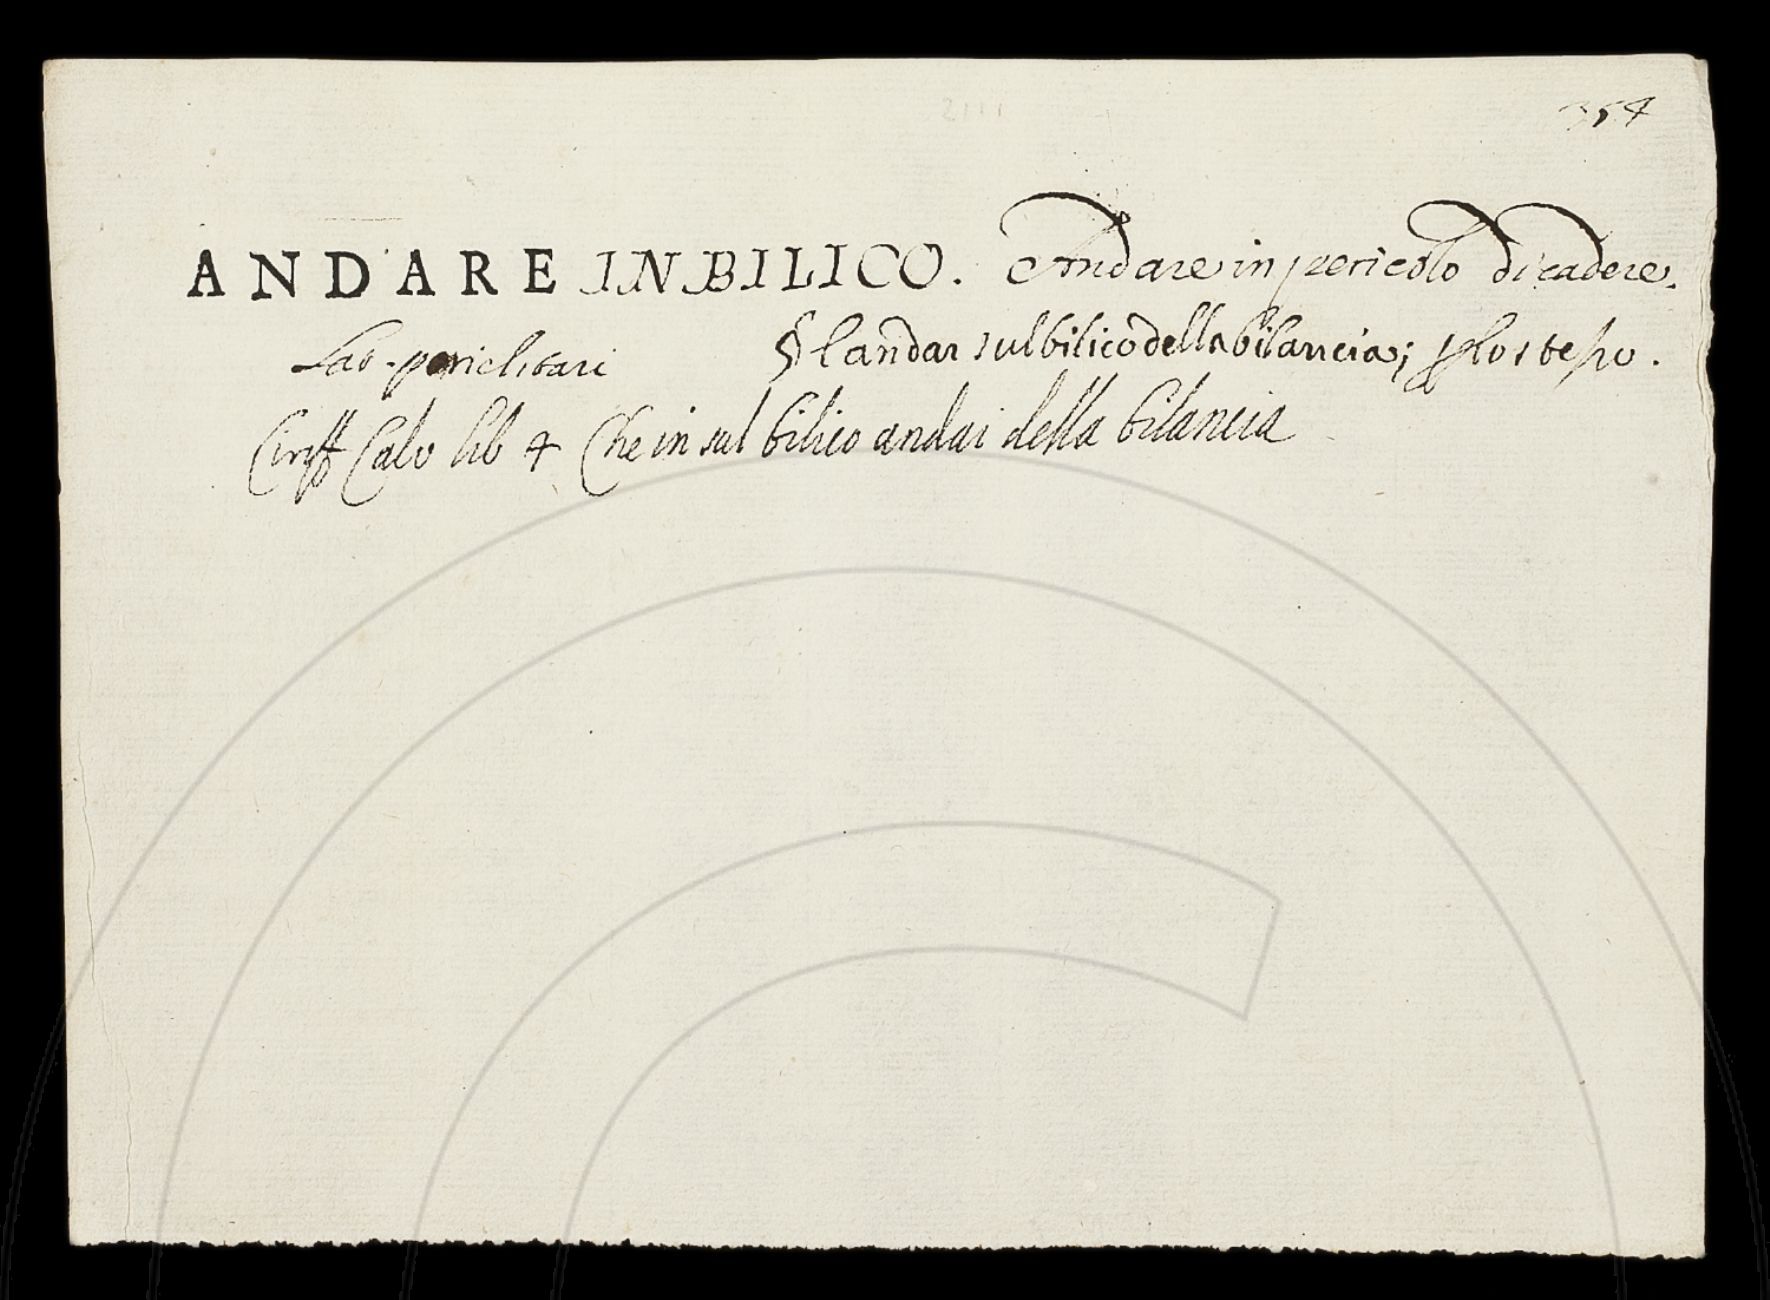 354
ANDARE IN BILICO. Andare in pericolo di cadere.
Lat. periclitari § landar sul bilico della bilancia; p lo stesso.
Ciriff Calv lib 4 Che in sul bilico andai della bilancia